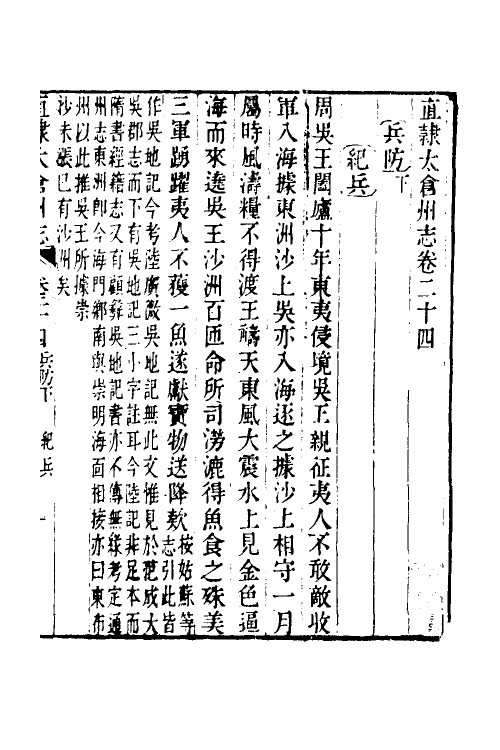 直隷太倉州志卷二十四
兵防下
紀兵
周吳王闔廬十年東夷侵境吳王親征夷人不敢敵收
軍入海據東洲沙上吳亦入海逐之據沙上相守一月
屬時風濤糧不得渡王禱天東風大震水上見金色逼
海而來遶吳王沙洲百匝命所司撈漉得魚食之殊美
三軍踴躍夷人不獲一魚遂獻寶物送降欵按姑蘇等志引此皆
作吳地記今考陸廣微吳地記無此文惟見於范成大
吳郡志而下有吳地記三小字註耳今陸記非足本而
隋書經籍志又有顧彝吳地記書亦不傳無緣考定通
州志東洲卽今海門鄉南與崇明海面相接亦曰東布
州以此推吳王所據崇
沙未漲已有沙洲矣
直隷太倉州志 卷二十四兵防下 紀兵 一